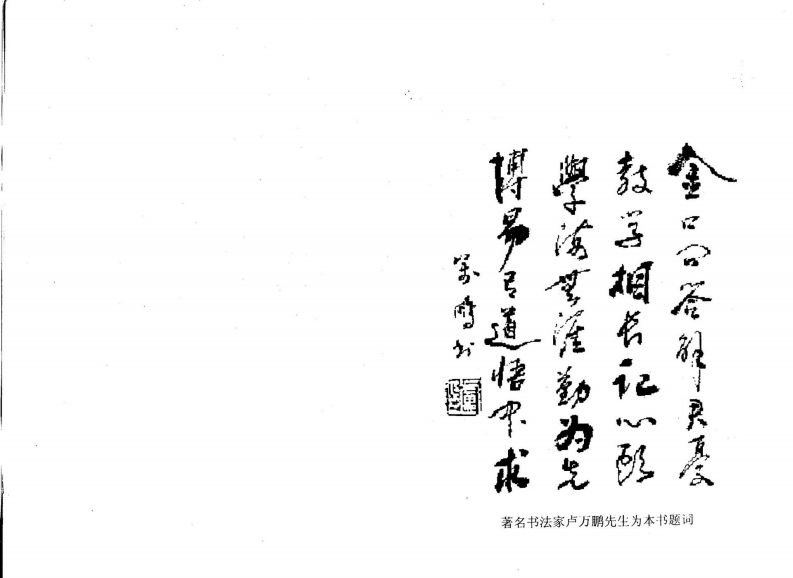 金口问答解君忧
教学相长记心头
學海無涯勤为先
博易有道悟中求
万鹏书
著名书法家卢万鹏先生为本书题词